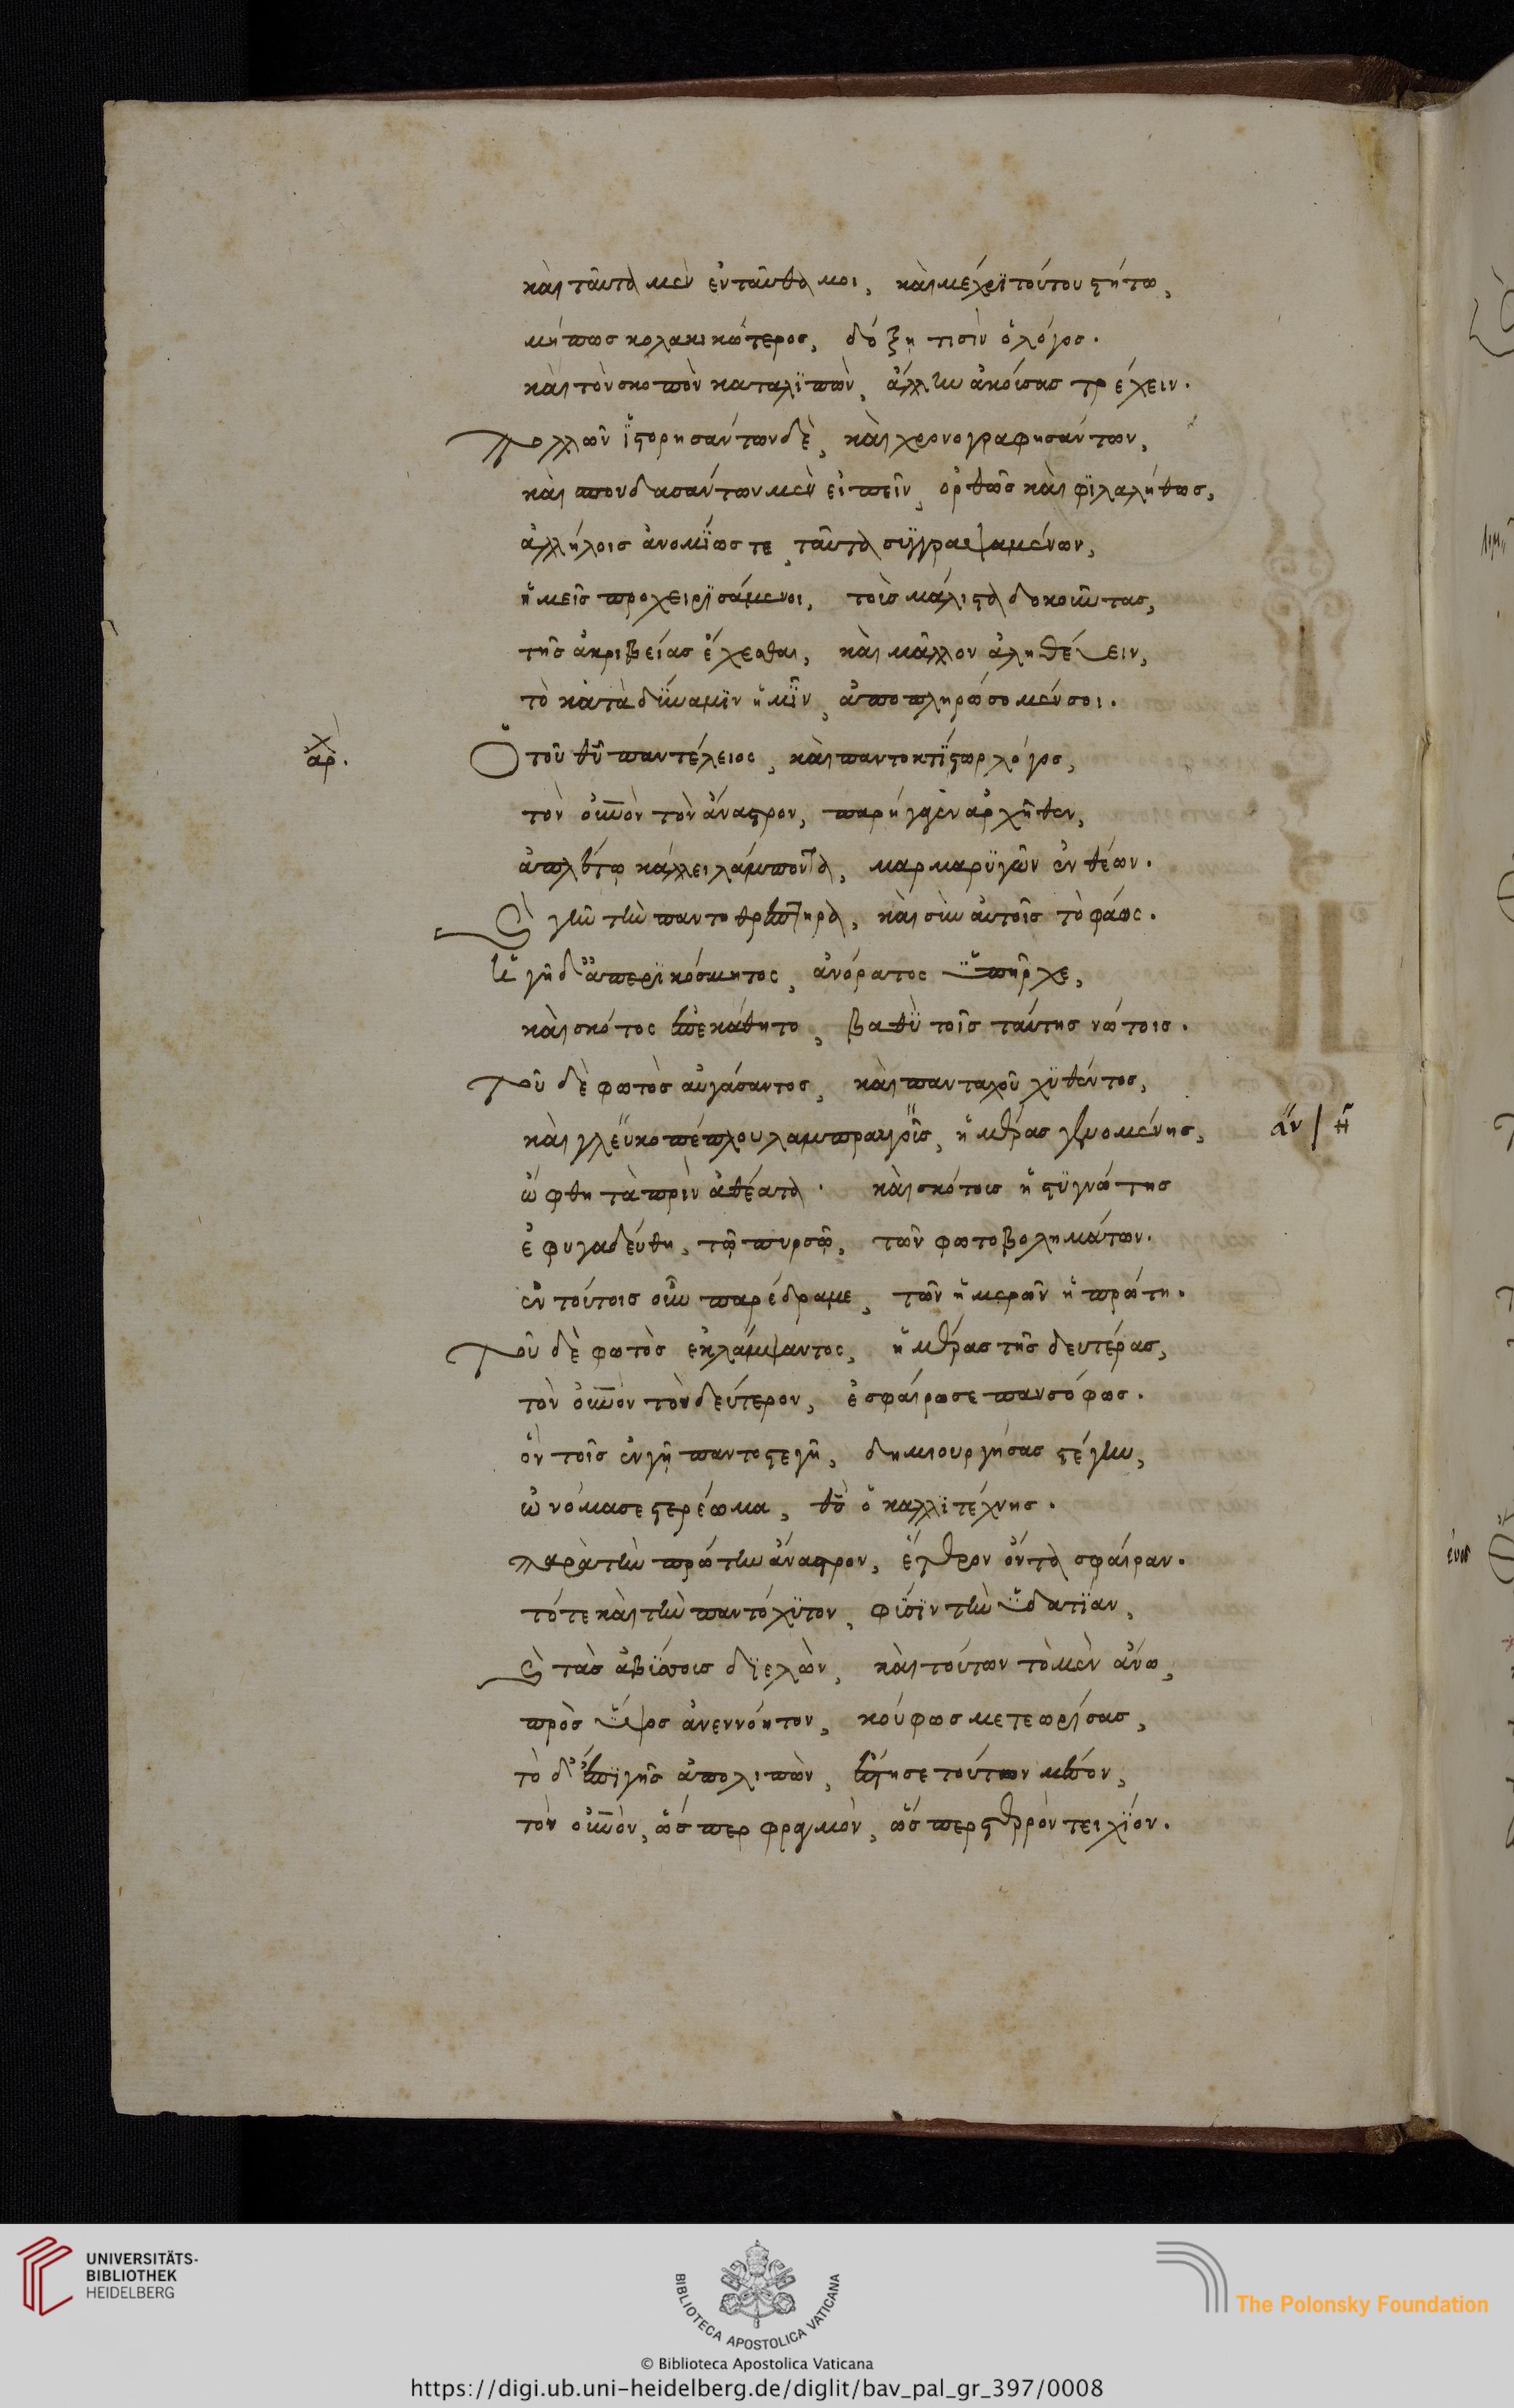 καὶ ταῦτα μὲν ἐνταῦθα μοι, καὶ μέχρι τούτου στήτω,
μήπως κολακικώτερος, δόξη τισὶν ὁ λόγος.
καὶ τὸν σκοπὸν καταλϊπὼν, ἄλλην τρέχειν.
Πολλῶν ἱστορησάντων δὲ, καὶ χρονογραφησάντων,
καὶ σπουδασάντων μὲν εἰπεῖν, ὀρθῶς καὶ φϊλαλήθως,
ἀλλήλοις ἀνομοίως τε, ταῦτα συγγραψαμένων,
ἡμεῖς προχειρϊσάμενοι, τοὺς μάλιστα δοκοῦντας,
τῆς ἀκριβείας ἔχεσθαι, καὶ μᾶλλον ἀληθεύειν,
τὸ κατὰ δύναμϊν ἡμῖν, ἀποπληρώσομέν σοι.
ἀρχ.
Ὁ τοῦ θῦ παντέλειος, καὶ παντοκτίστωρ λόγος,
τὸν οὐνὸν τὸν ἄναστρον, παρήγαγεν ἀρχῆθεν,
ἀπλέτω κάλλει λάμποντα, μαρμαρυγῶν ἐνθέων.
Καὶ γῆν τὴν παντοθρέπτηρα, καὶ σὺν αὐτοῖς τὸ φάος.
Ἡ γῆ δ' ἀπερϊκόσμητος, ἀνόρατος ὑπῆρχε,
καὶ σκότος ἐπεκάθητο, βαθὺ τοῖς ταύτης νώτοις.
Τοῦ δὲ φωτὸς αὐγάσαντος, καὶ πανταχοῦ χυθέντος,
καὶ γλευκοπέπλου λαμπραυγοῦς, ἡμέρας γενομένης,
ἄν / ἢ
ὤφθη τὰ πρὶν ἀθέατα. καὶ σκότους ἡ στυγνότης
ἐφυγαδεύθη, τῷ πυρσῷ, τῶν φωτοβολημάτων.
ἐν τούτοις οὖν παρέδραμε, τῶν ἡμερῶν ἡ πρώτη.
Τοῦ δὲ φωτὸς ἐκλάμψαντος, ἡμέρας τῆς δευτέρας,
τὸν οὐνὸν τὸν δεύτερον, ἐσφαίρωσε πανσόφως.
ὃν τοῖς ἐν γῇ παντοστεγῆ, δημιουργήσας στέγην,
ὠνόμασε στερέωμα, θς̄ ὁ καλλιτέχνης.
παρὰ τὴν πρώτην ἄναστρον, ἕτερον ὄντα σφαίραν.
τότε καὶ τὴν παντόχυτον, φύσϊν τὴν ὑδατίαν,
Καὶ τὰς ἀβύσσους διελὼν, καὶ τούτων τὸ μὲν ἄνω,
πρὸς ὕψος ἀνεννόητον, κούφως μετεωρίσας,
τὸ δ' ἐπὶ γῆς ἀπολιπὼν, ἔστησε τούτων μέσον,
τὸν οὐνὸν, ὥσπερ φραγμὸν, ὥσπερ στερρὸν τειχίον.
UNIVERSITÄTS-
BIBLIOTHEK
HEIDELBERG
BIBLIOTECA APOSTOLICA VATICANA
The Polonsky Foundation
© Biblioteca Apostolica Vaticana
https://digi.ub.uni-heidelberg.de/diglit/bav_pal_gr_397/0008